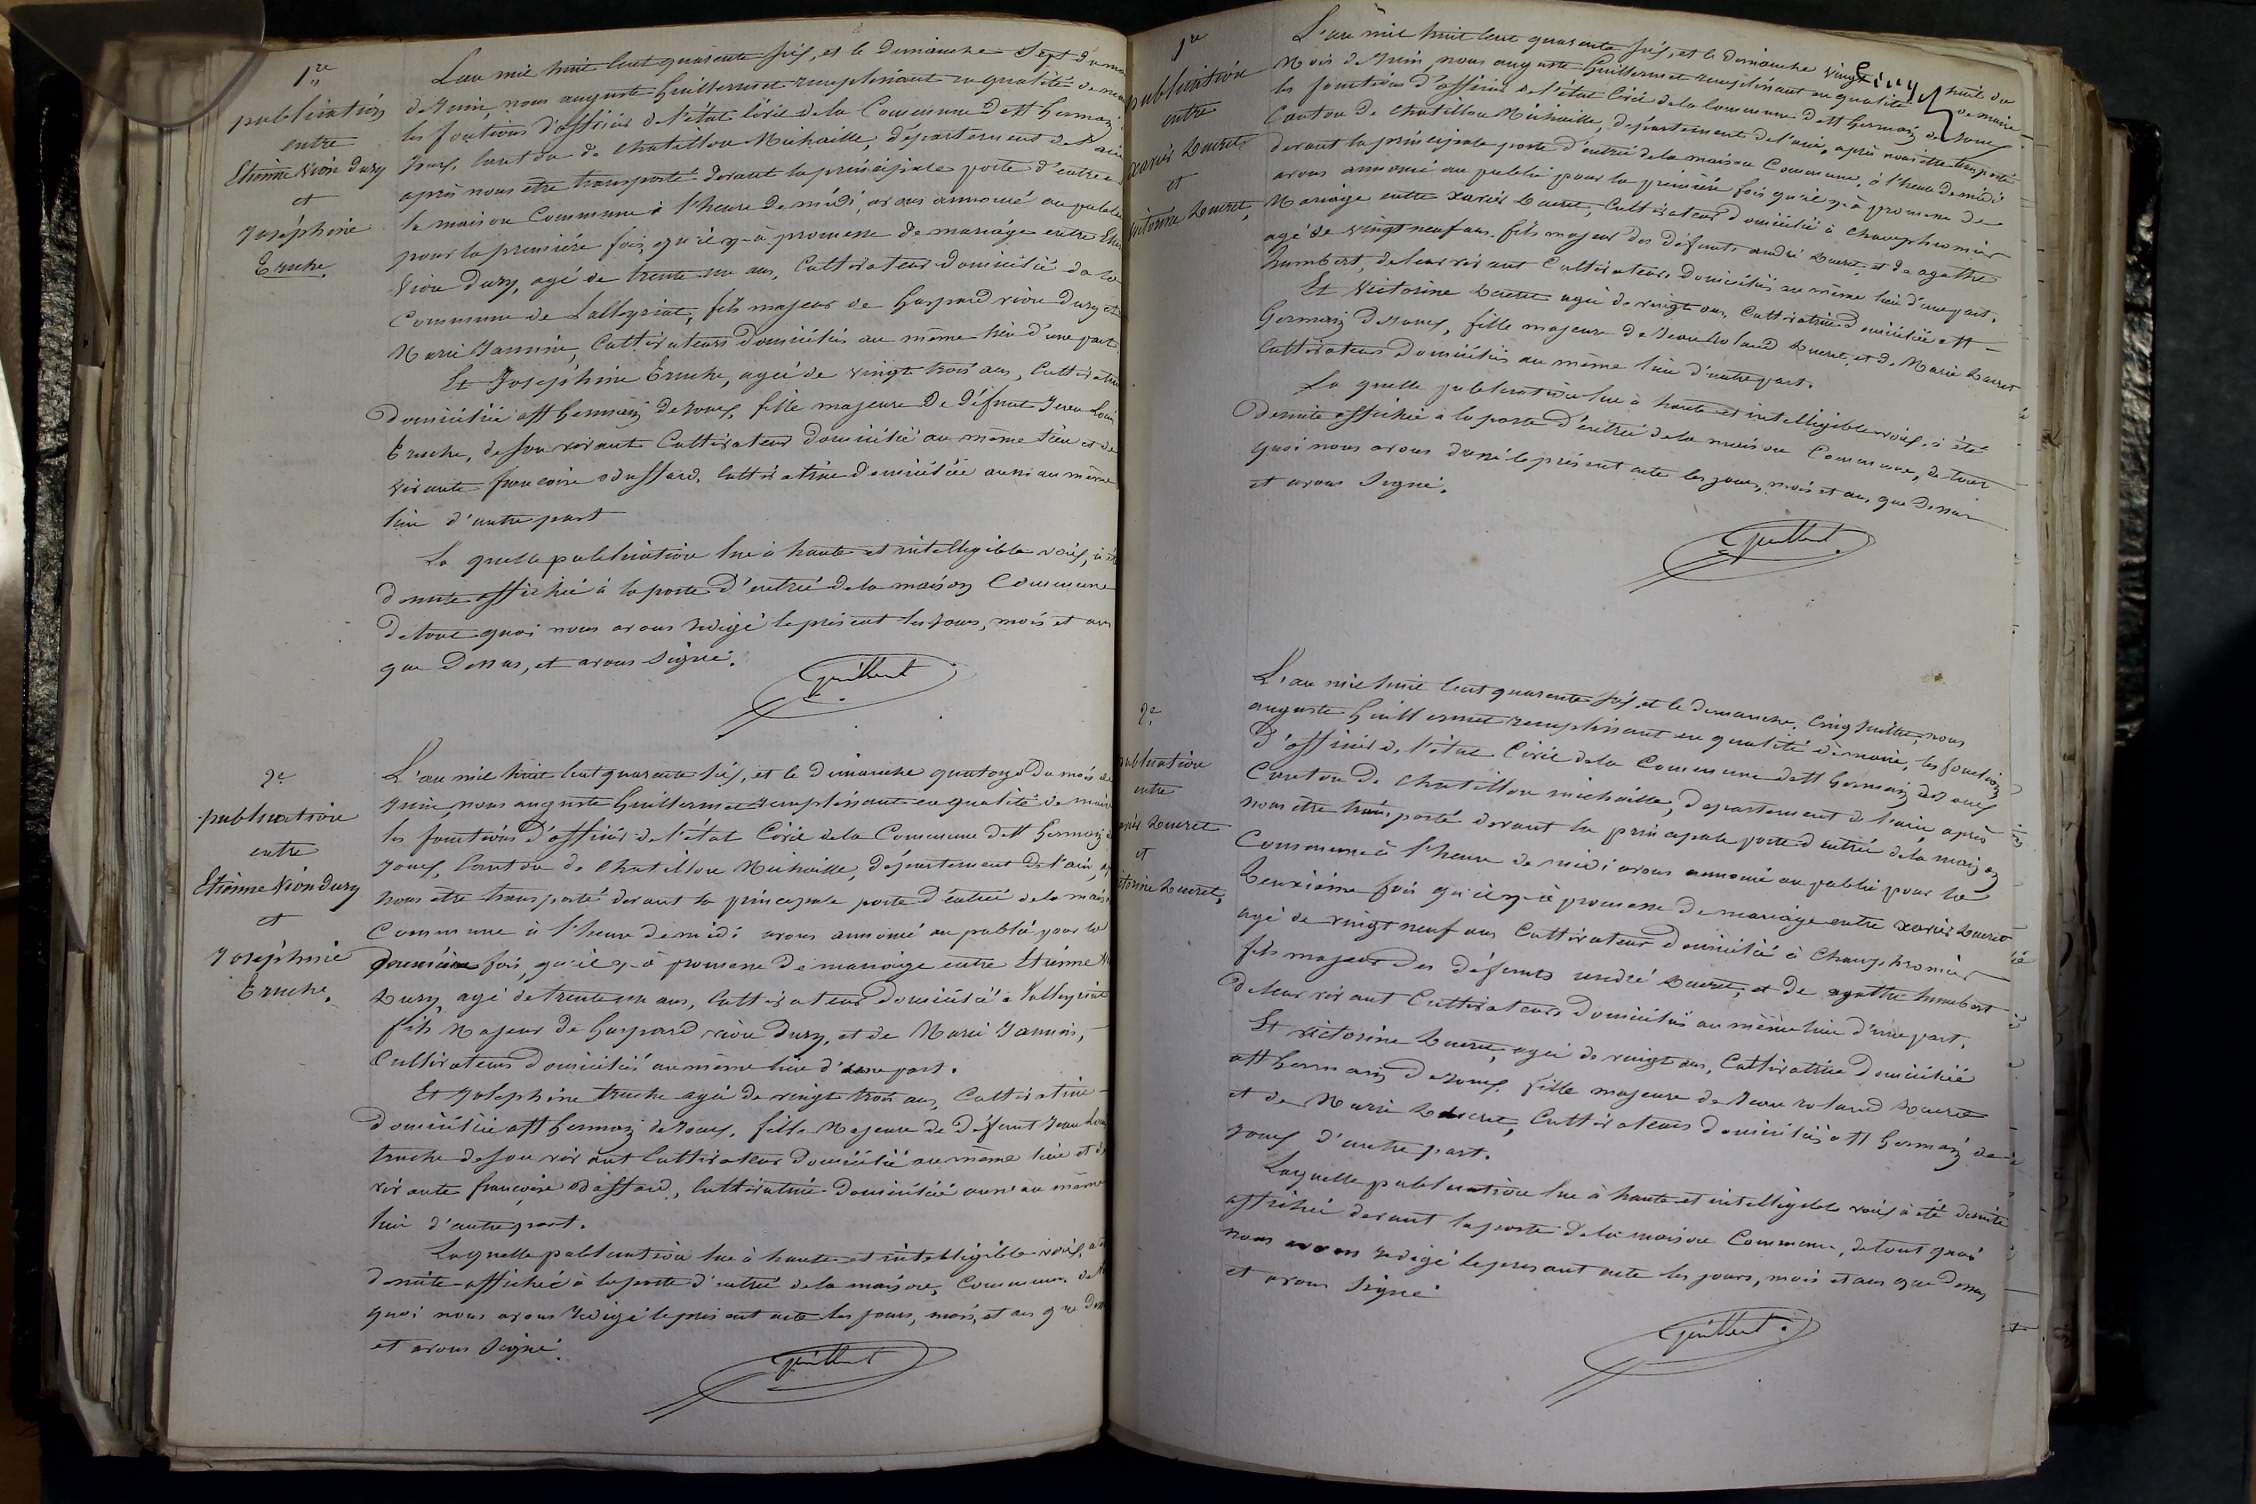 1re
publication
entre
Etienne Vion Dury
et
Joséphine
Truche.
L'an mil huit cent quarante six, et le dimanche sept du mois
de Juin, nous auguste Guillermet remplissant en qualité de
les fonctions d'officier de l'état Civil de la Commune de St Germain
Joux, Canton de Chatillon Michaille, département de l'ain
après nous être transporté devant la principale porte d'entrée
la maison Commune à l'heure de midi, avons annoncé au public
pour la première fois, qu'il y à promesse de mariage entre
Vion Dury, agé de trente un ans, Cultivateur domicilié de la
Commune de Lalleyriat, fils majeur de Gaspard vion Dury et
Marie Jannin, Cultivateurs domiciliés au même lieu d'une part
Et Joséphine Truche, agée de vingt trois ans, Cultivatrice
domiciliée à St Germain de Joux, fille majeure de défunt Jean Louis
Truche, de son vivant Cultivateur domicilié au même lieu et de
vivante françoise odaffard, Cultivatrice domiciliée aussi au même
lieu d'autre part
La quelle publication lue à haute et intelligible voix, à été
de suite affichée à la porte d'entrée de la maison Commune
de tout quoi nous avons rédigé le présent les jours, mois et an
que dessus, et avons signé.
Guillermet
2e
publication
entre
Etienne Vion Dury
et
Joséphine
Truche.
L'an mil huit cent quarante six, et le dimanche quatorze du mois de
Juin, nous auguste Guillermet remplissant en qualité de maire
les fonctions d'officier de l'état Civil de la Commune de St Germain
Joux, Canton de Chatillon Michaille, département de l'ain,
nous être transporté devant la principale porte d'entrée de la
Commune à l'heure de midi avons annoncé au public pour la
deuxième fois, qu'il y à promesse de mariage entre Etienne
Dury, agé de trente un ans, Cultivateur domicilié à Lalleyriat
fils Majeur de Gaspard vion Dury, et de Marie Jannin,
Cultivateurs domiciliés au même lieu d'une part.
Et Joséphine truche agée de vingt trois ans, Cultivatrice
domiciliée à St Germain de Joux, fille Majeure de défunt Jean Louis
truche de son vivant Cultivateur domicilié au même lieu et de
vivante françoise odaffard, Cultivatrice domiciliée aussi au même
lieu d'autre part.
Laquelle publication lue à haute et intelligible voix,
de suite affichée à la porte d'entrée de la maison Commune de
quoi nous avons rédigé le présent acte les jours, mois, et an que
et avons signé.
Guillermet
1re
publication
entre
xavier Ducret
et
Victorine Ducret,
L'an mil huit cent quarante six, et le dimanche vingt huit du
Mois de Juin, nous auguste Guillermet remplissant en qualité de maire
les fonctions d'officier de l'état Civil de la Commune de St Germain de Joux
Canton de Chatillon Michaille, département de l'ain, après nous être transporté
devant la principale porte d'entrée de la maison Commune, à l'heure de midi
avons annoncé au public pour la première fois qu'il y à promesse de
Mariage entre xavier Ducret, Cultivateur domicilié à Champfromier
agé de vingt neuf ans fils majeur des défunts andré Ducret, et de agathe
humbert, de leur vivant Cultivateurs domiciliés au même lieu d'une part.
Et Victorine Ducret agée de vingt ans, Cultivatrice domiciliée à St
Germain de Joux, fille majeure de Jean roland Ducret, et de Marie Ducret
Cultivateurs domiciliés au même lieu d'autre part.
La quelle publication lue à haute et intelligible voix, à été
de suite affichée à la porte d'entrée de la maison Commune, de tout
quoi nous avons dressé le présent acte les jours, mois et an que dessus
et avons signé.
Guillermet
2e
publication
entre
xavier Ducret
et
Victorine Ducret,
L'an mil huit cent quarante six, et le dimanche Cinq Juillet, nous
auguste Guillermet remplissant en qualité de maire, les fonctions
d'officier de l'état Civil de la Commune de St Germain de Joux
Canton de Chatillon michaille, département de l'ain, après
nous être transporté devant la principale porte d'entrée de la maison
Commune à l'heure de midi avons annoncé au public pour la
deuxième fois qu'il y à promesse de mariage entre xavier Ducret
agé de vingt neuf ans Cultivateur domicilié à Champfromier
fils majeur des défunts andré Ducret, et de agathe humbert
de leur vivant Cultivateurs domiciliés au même lieu d'une part.
Et victorine Ducret, agée de vingt ans, Cultivatrice domiciliée
à St Germain de Joux, fille majeure de Jean roland Ducret
et de Marie Ducret, Cultivateurs domiciliés à St Germain de
Joux d'autre part.
Laquelle publication lue à haute et intelligible voix à été de suite
affichée devant la porte de la maison Commune, de tout quoi
nous avons rédigé le présent acte les jours, mois et an que dessus
et avons signé
Guillermet